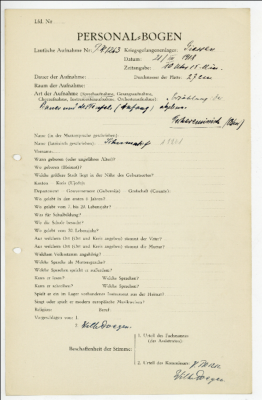 Lfd. Nr.
PERSONAL-BOGEN
Lautliche Aufnahme Nr. Kriegsgefangenenlager: Giessen
Datum: 1918
Zeitangabe: 10 Uhr 15 Min.
Dauer der Aufnahme: Durchmesser der Platte: 27 cm
Raum der Aufnahme:
Art der Aufnahme (Sprechaufnahme, Gesangsaufnahme,
Choraufnahme, Instrumentenaufnahme, Orchesteraufnahme): Erzählung
(Anfang)
Name (in der Muttersprache geschrieben):
Name (lateinisch geschrieben):
Vorname:
Wann geboren (oder ungefähres Alter)?
Wo geboren (Heimat)?
Welche größere Stadt liegt in der Nähe des Geburtsortes?
Kanton — Kreis (Ujedz):
Department — Gouvernement (Gubernija) — Grafschaft (County):
Wo gelebt in den ersten 6 Jahren?
Wo gelebt vom 7. bis 20. Lebensjahr?
Was für Schulbildung?
Wo die Schule besucht?
Wo gelebt vom 20. Lebensjahr?
Aus welchem Ort (Ort und Kreis angeben) stammt der Vater?
Aus welchem Ort (Ort und Kreis angeben) stammt die Mutter?
Welchem Volksstamm angehörig?
Welche Sprache als Muttersprache?
Welche Sprachen spricht er außerdem?
Kann er lesen? Welche Sprachen?
Kann er schreiben? Welche Sprachen?
Spielt er ein im Lager vorhandenes Instrument aus der Heimat?
Singt oder spielt er modern europäische Musikweisen?
Religion: Beruf:
Vorgeschlagen von: 1.
2.
Wilh. Doegen
Beschaffenheit der Stimme:
1. Urteil des Fachmannes
(des Assistenten):
2. Urteil des Kommissars:
Wilh. Doegen